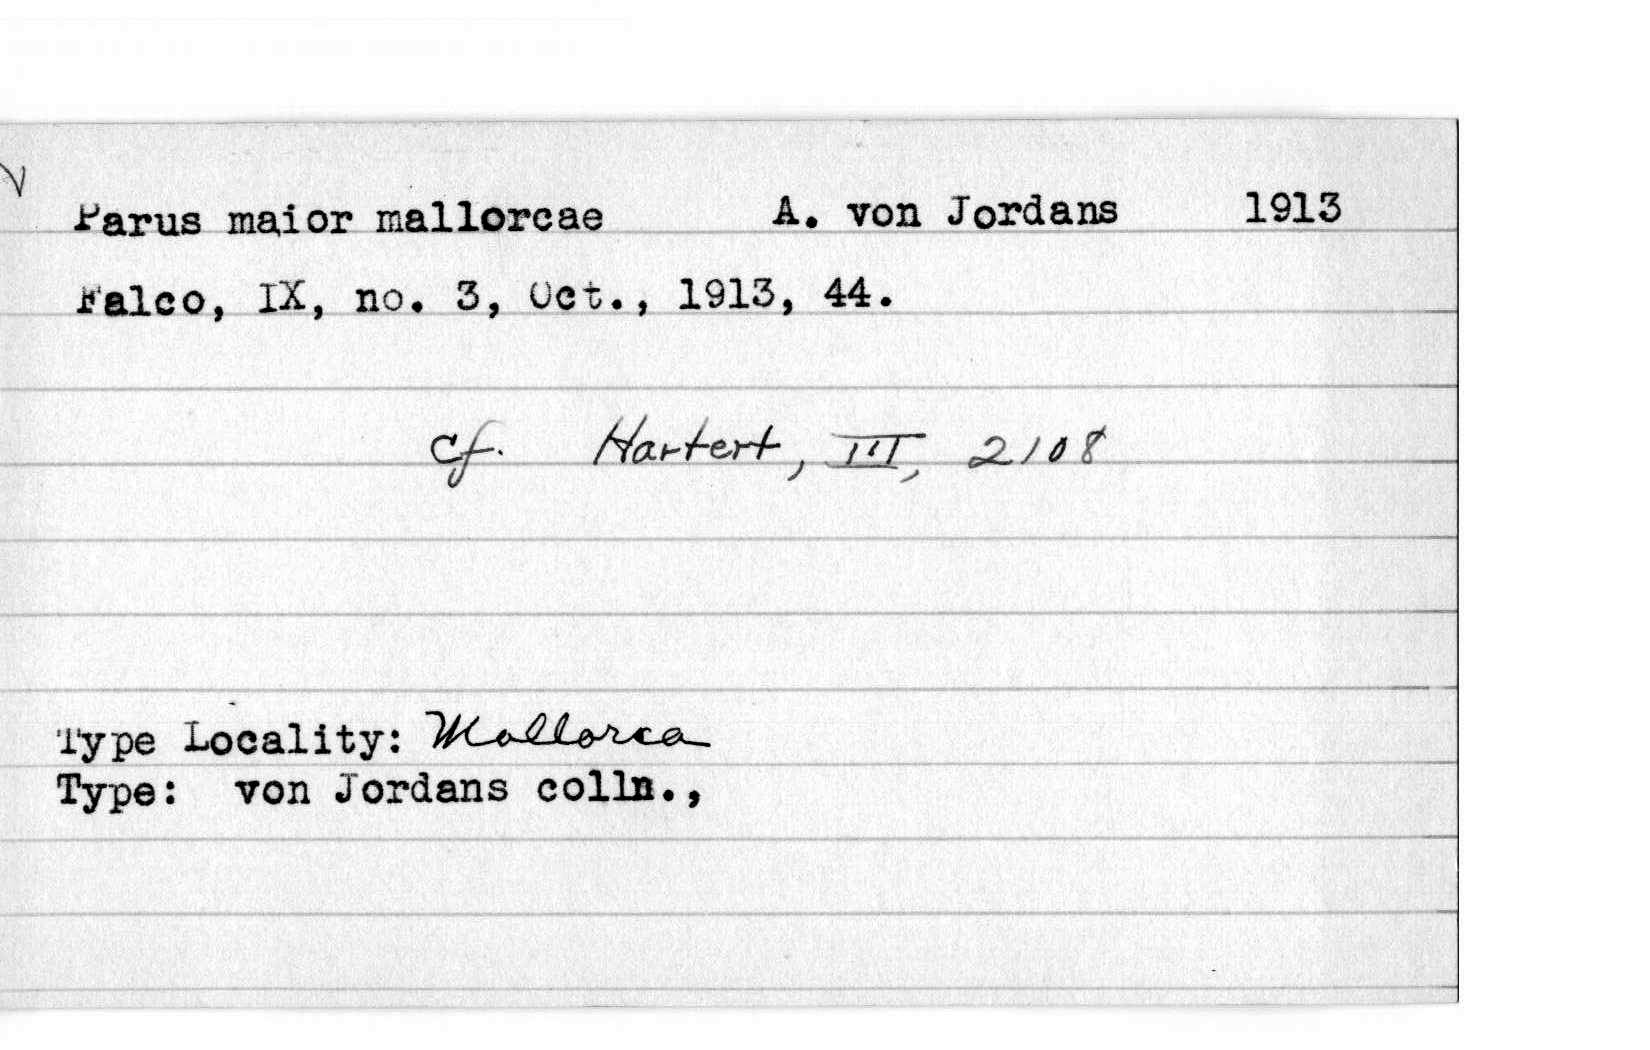 Parus maior mallorcae A. von Jordans 1913
Falco, IX, no. 3, Oct., 1913, 44.
cf. Hartert, III, 2108
Type Locality: Mallorca
Type: von Jordans colln.,